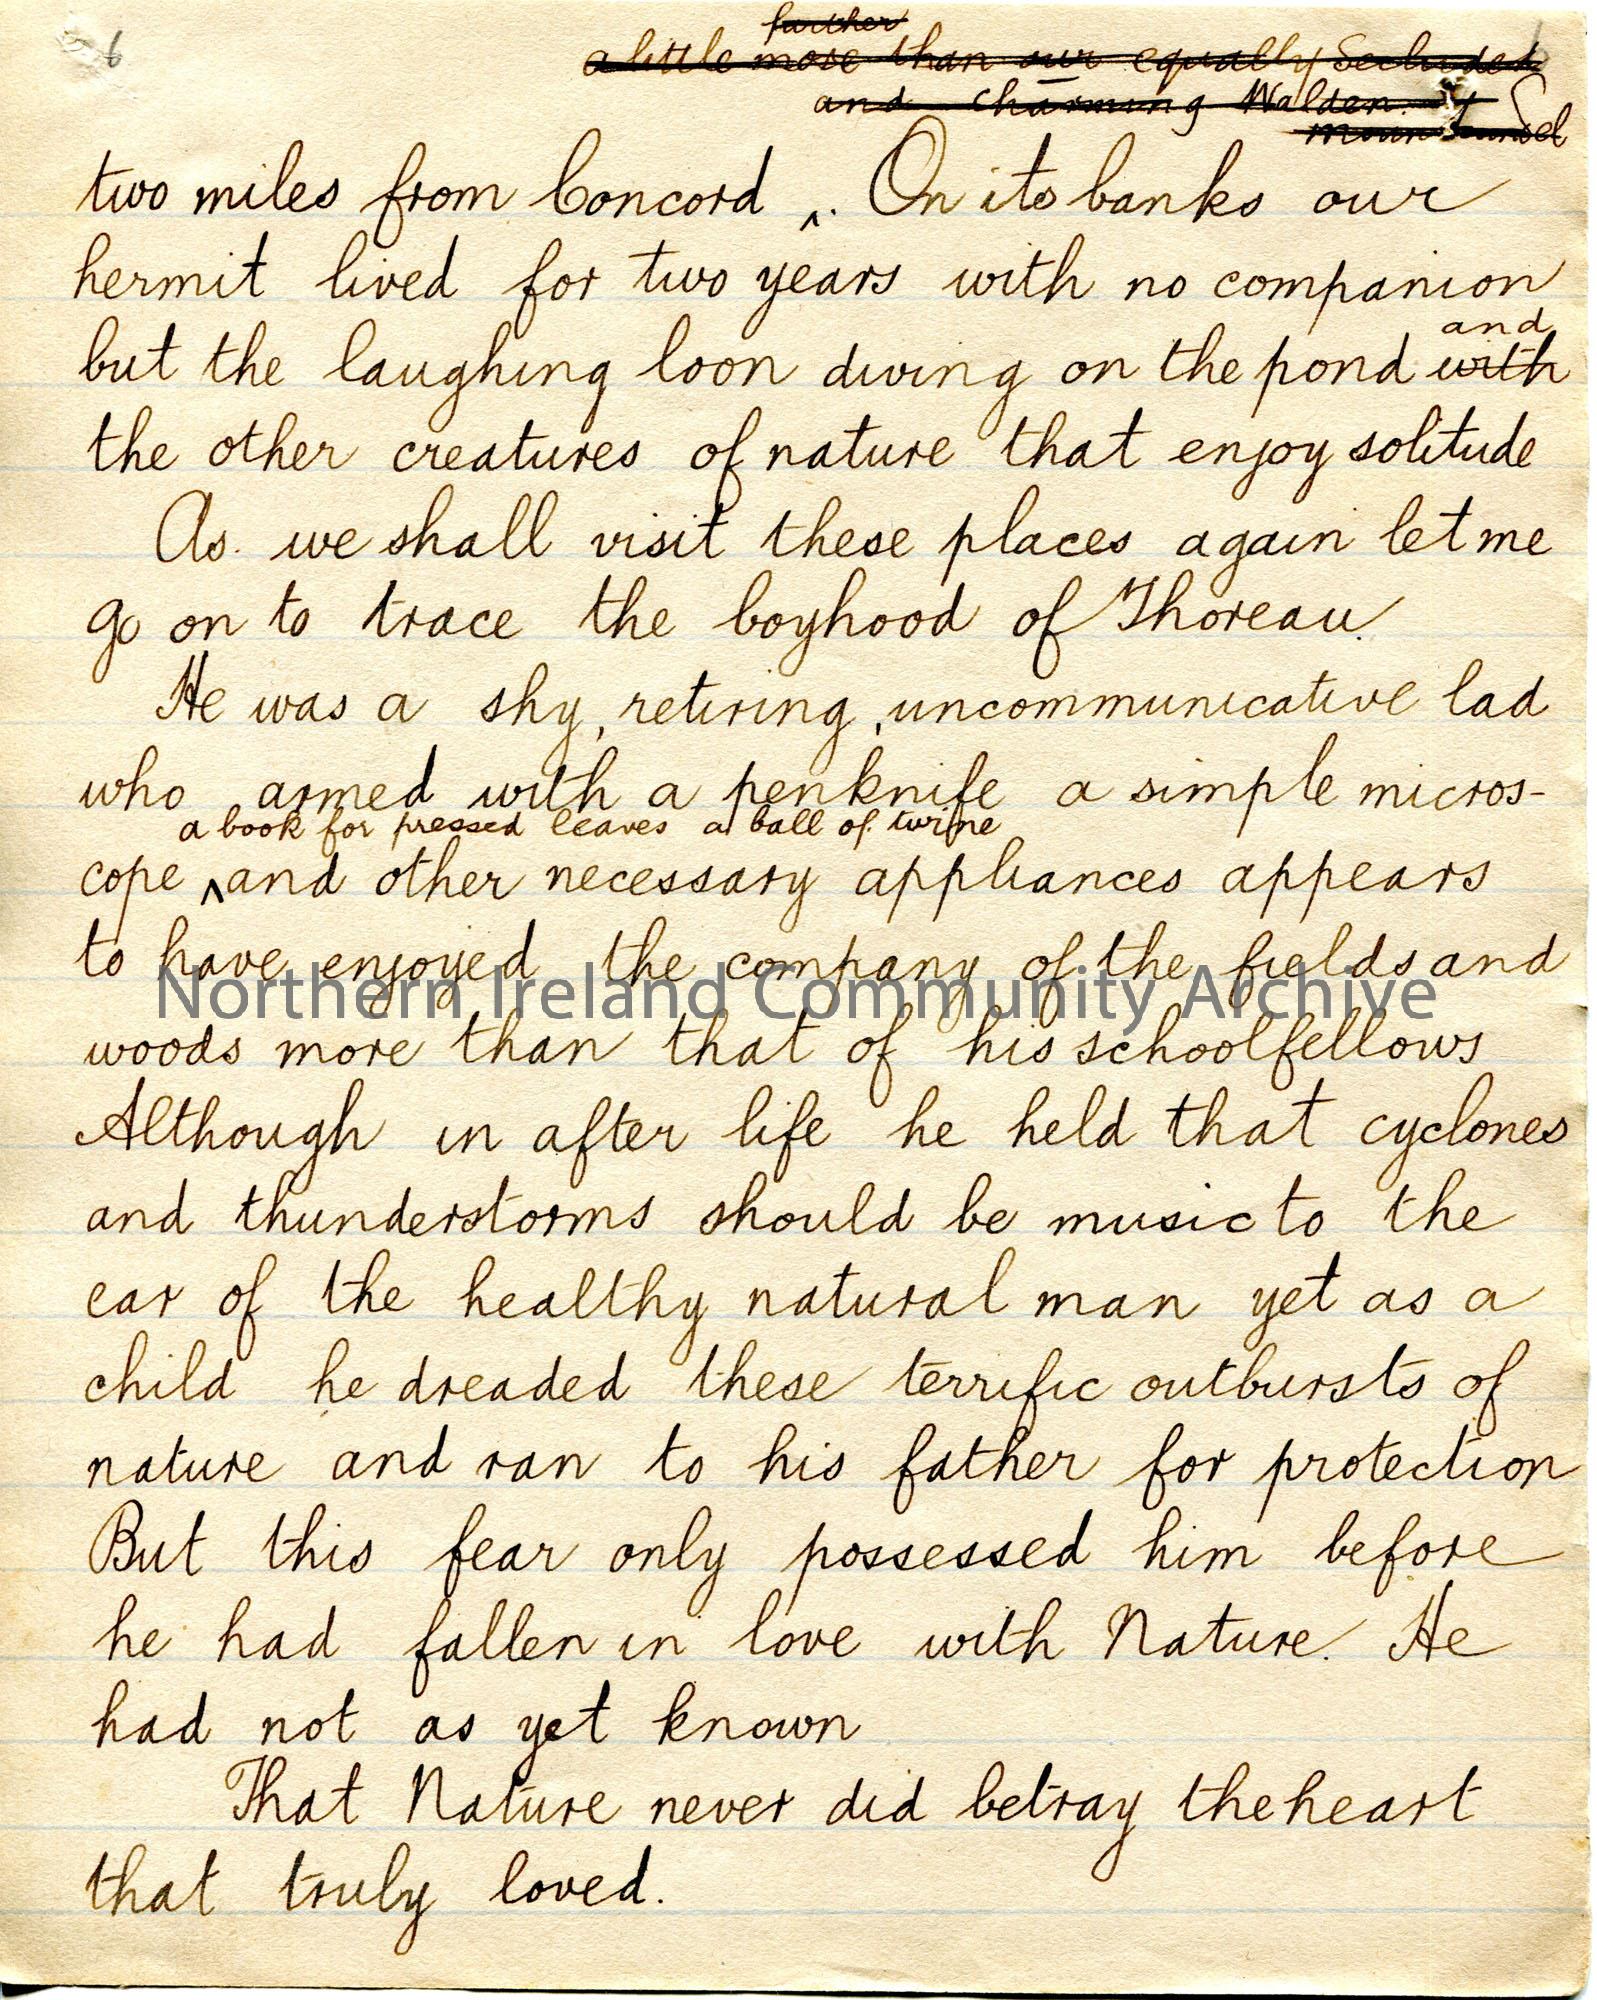 6
further
a little more than our equally Secluded
and charming Walden at
two miles from Concord ‸. On its banks our
hermit lived for two years with no companion
and
but the laughing loon diving on the pond with
the other creatures of nature that enjoy solitude
As we shall visit these places again let me
go on to trace the boyhood of Thoreau.
He was a shy, retiring, uncommunicative lad
who armed with a penknife a simple micros-
a book for pressed leaves a ball of twine
cope ‸ and other necessary appliances appears
to have enjoyed the company of the fields and
Northern Ireland Community Archive
woods more than that of his schoolfellows
Although in after life he held that cyclones
and thunderstorms should be music to the
ear of the healthy natural man yet as a
child he dreaded these terrific outbursts of
nature and ran to his father for protection
But this fear only possessed him before
he had fallen in love with Nature. He
had not as yet known
That Nature never did betray the heart
that truly loved.